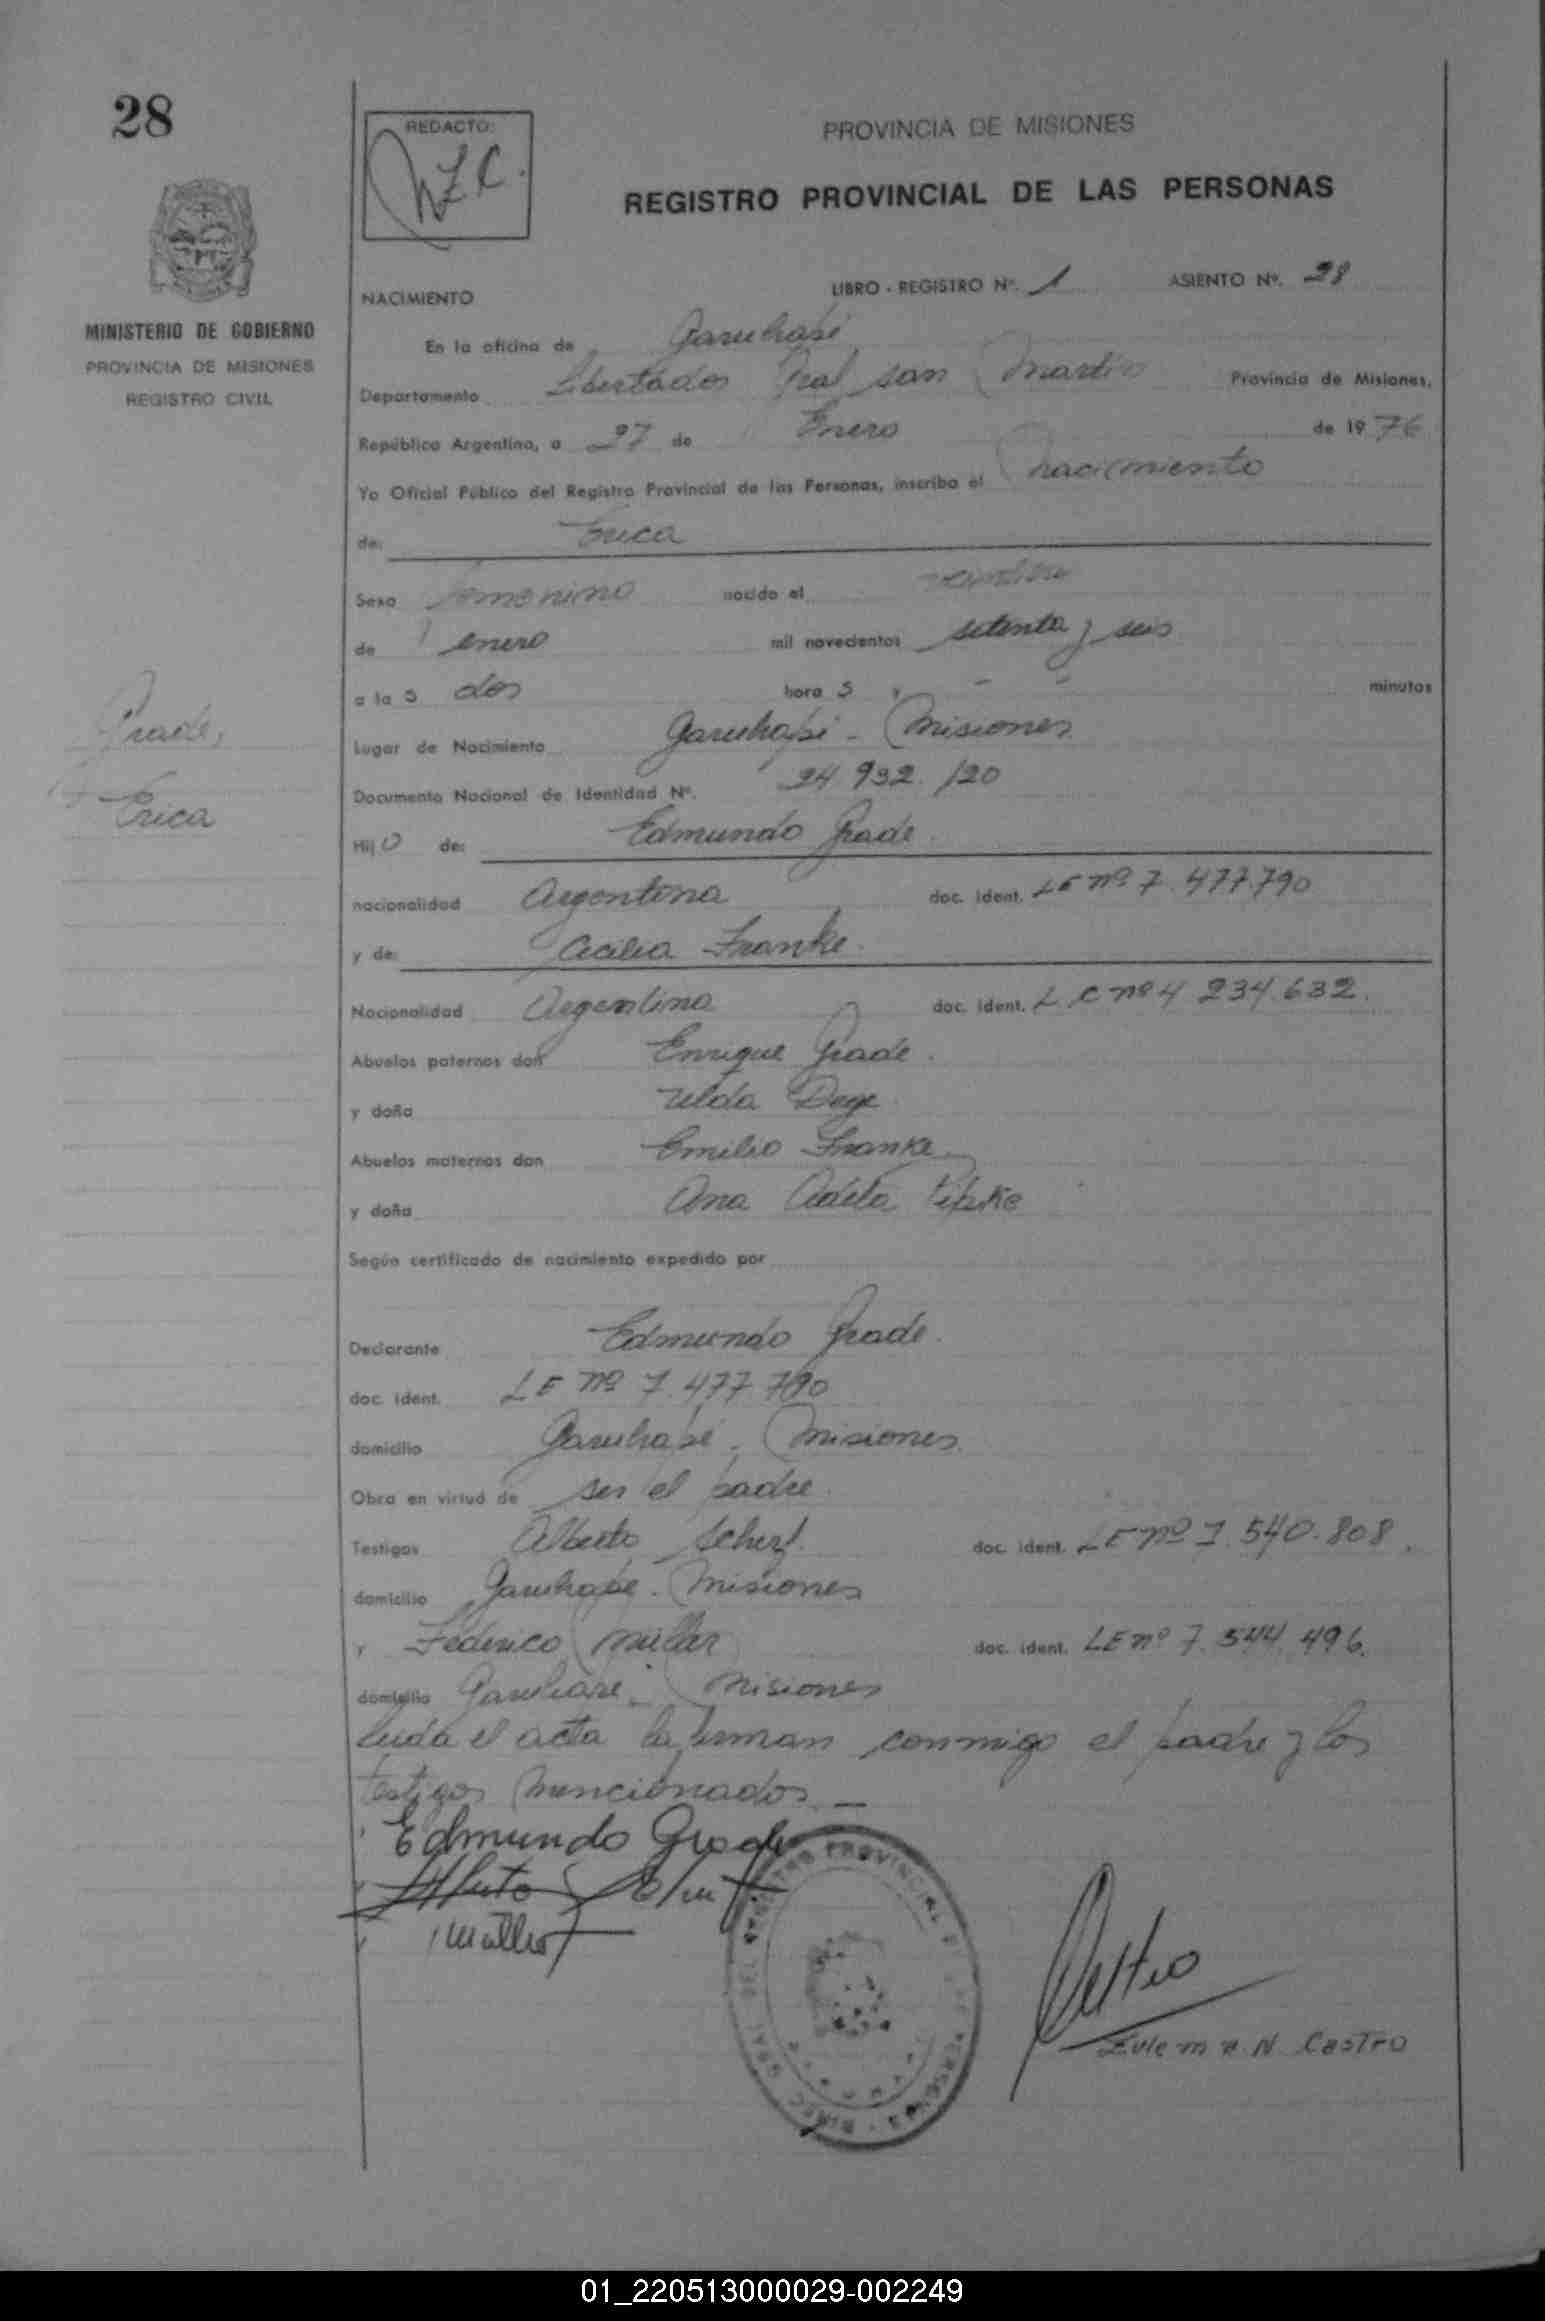 28
REDACTO:
N.Z.C.
PROVINCIA DE MISIONES
REGISTRO PROVINCIAL DE LAS PERSONAS
MINISTERIO DE GOBIERNO
PROVINCIA DE MISIONES
REGISTRO CIVIL
NACIMIENTO LIBRO - REGISTRO Nº. 1 ASIENTO Nº. 28
En la oficina de Garuhapé
Departamento Libertador Gral san Martín Provincia de Misiones,
República Argentina, a 27 de Enero de 1976
Yo Oficial Público del Registro Provincial de las Personas, inscribo el nacimiento
de: Erica
Sexo femenino nacido el
de enero mil novecientos setenta y seis
a la s dos hora s y - - minutos
Lugar de Nacimiento Garuhapé - Misiones
Grade,
Erica
Documento Nacional de Identidad Nº. 24.932.120
Hij o de: Edmundo Grade.
nacionalidad Argentina doc. ident. LE nº 7.477.790
y de: Cecilia Franke.
Nacionalidad Argentina doc. ident. L.C nº 4 234.632.
Abuelos paternos don Enrique Grade.
y doña Zelda Dege.
Abuelos maternos don Emilio Franke.
y doña Ana Adela
Según certificado de nacimiento expedido por
Declarante Edmundo Grade.
doc. ident. LE nº 7.477.790
domicilio Garuhapé. Misiones
Obra en virtud de ser el padre.
Testigos Alberto doc. ident. LE nº 7.540.808.
domicilio Garuhapé. Misiones
y Federico Müller doc. ident. LE nº 7.544.496.
domicilio Garuhapé. Misiones
leida el acta la firman conmigo el padre y los
testigos mencionados. —
Edmundo Grade
Alberto
Müller
REGISTRO PROVINCIAL DE LAS PERSONAS - DIREC. GRAL. DEL
Castro
Zulema N. Castro
01_220513000029-002249